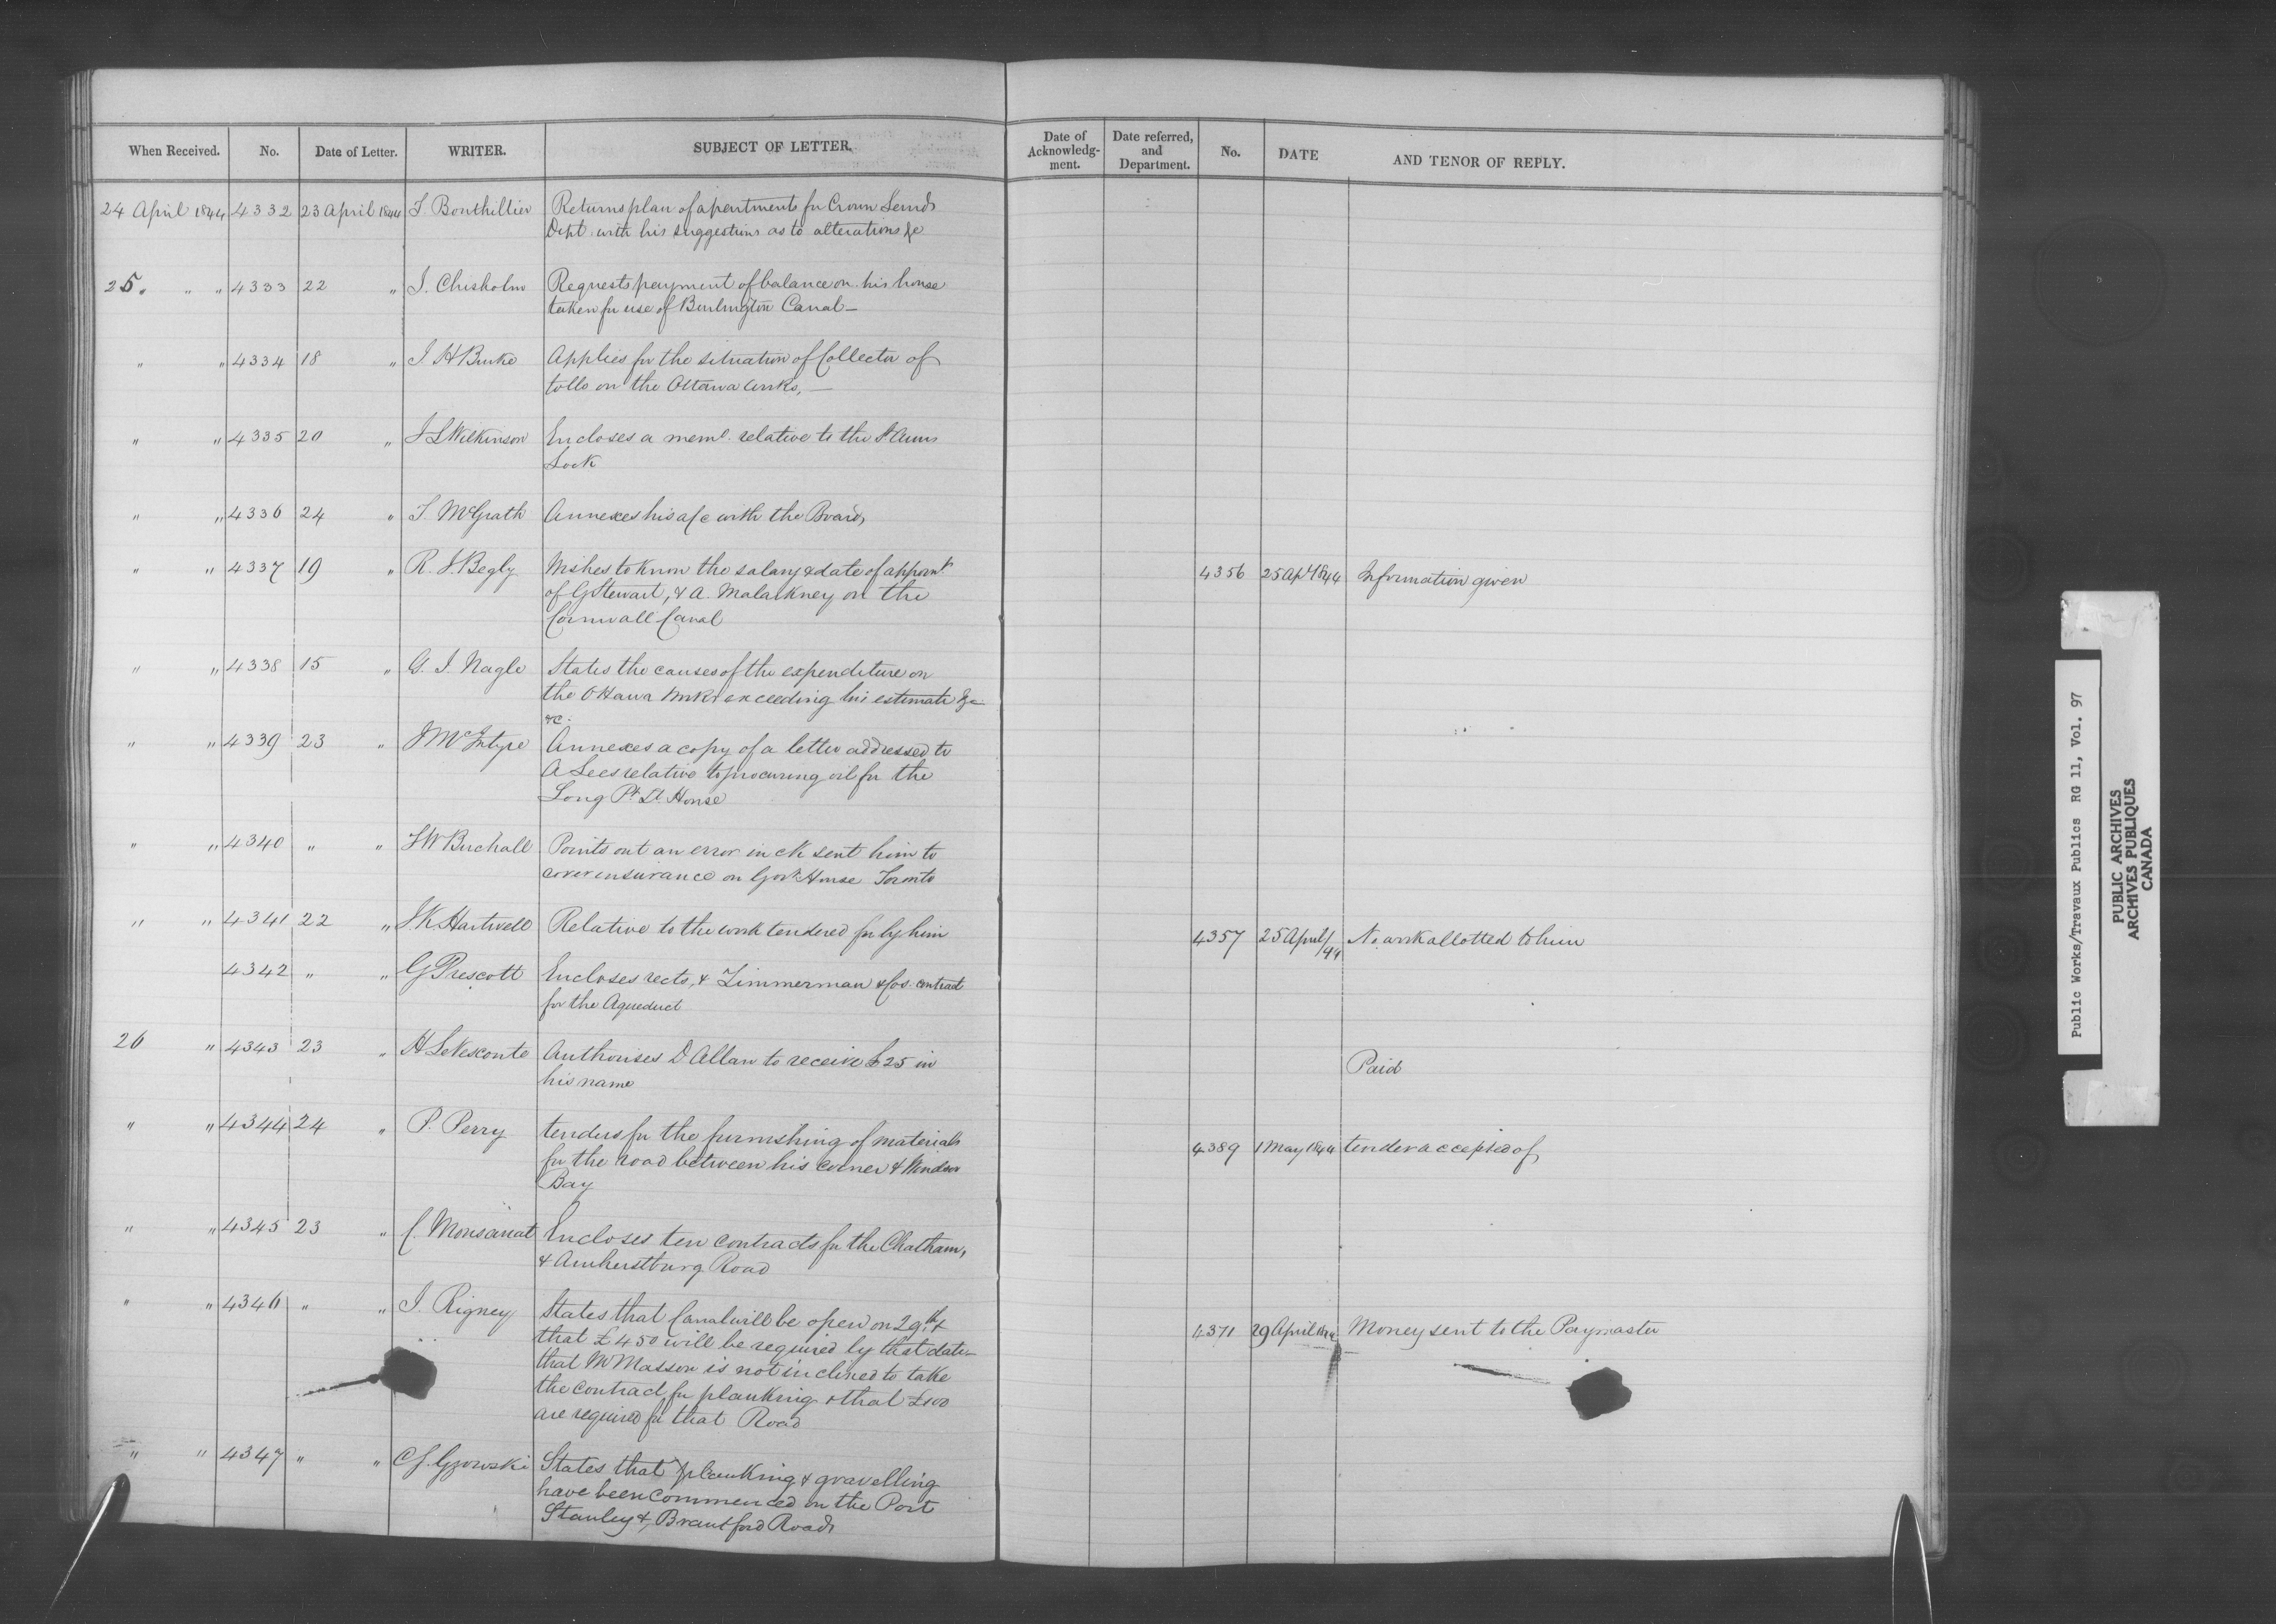 When Received. No. Date of Letter. WRITER. SUBJECT OF LETTER. Date of Acknowledg-ment. Date referred, and Department. No. DATE AND TENOR OF REPLY.
24 April 1844 4332 23 April 1844 T. Bouthillier Returns plan of apartments for Crown Lands
Dept. with his suggestions as to alterations &c
25. " " 4333 22 " J. Chisholm Requests payment of balance on his house
taken for use of Burlington Canal—
" " 4334 18 " J. H Burke Applies for the situation of Collector of
tolls on the Ottawa works,—
" " 4335 20 " J L Wilkinson Encloses a meml. relative to the St Anns
Lock
" " 4336 24 " T. McGrath Annexes his a/c with the Board,
" " 4337 19 " R. J. Begly Wishes to know the salary & date of appoint 4356 25 Apl 1844 Information given
of G Stewart, & A. Malarkney on the
Cornwall Canal
" " 4338 15 " G. J. Nagle States the causes of the expenditure on
the Ottawa works exceeding his estimate &c
&c.
" " 4339 23 " J McIntyre Annexes a copy of a letter addressed to
A Lees relative to procuring oil for the
Long Pt Lt House
" " 4340 " " T W Birchall Points out an error in ck sent him to
cover insurance on Govt House Toronto
" " 4341 22 " J. K Hartwell Relative to the work tendered for by him 4357 25 April/44 No work allotted to him
4342 " " G Prescott Encloses rects, & Zimmerman & Cos. contract
for the Aqueduct
26 " 4343 23 " H LeVesconte Authorises D Allan to receive £25 in Paid
his name
" " 4344 24 " P. Perry tenders for the furnishing of materials 4389 1 May 1844 tender accepted of
for the road between his corner & Windsor
Bay
" " 4345 23 " C. Monsarrat Encloses ten contracts for the Chatham,
& Amherstburg Road
" " 4346 " " J. Rigney States that Canal will be open on 29th &
that £450 will be required by that date— 4371 29 April 1844 Money sent to the Paymaster
that Mr Masson is not inclined to take
the contract for planking & that £100
are required for that Road
" " 4347 " " C S. Gzowski States that planking & gravelling
have been commenced on the Port
Stanley & Brantford Roads
Public Works/Travaux Publics RG 11, Vol. 97
PUBLIC ARCHIVES
ARCHIVES PUBLIQUES
CANADA